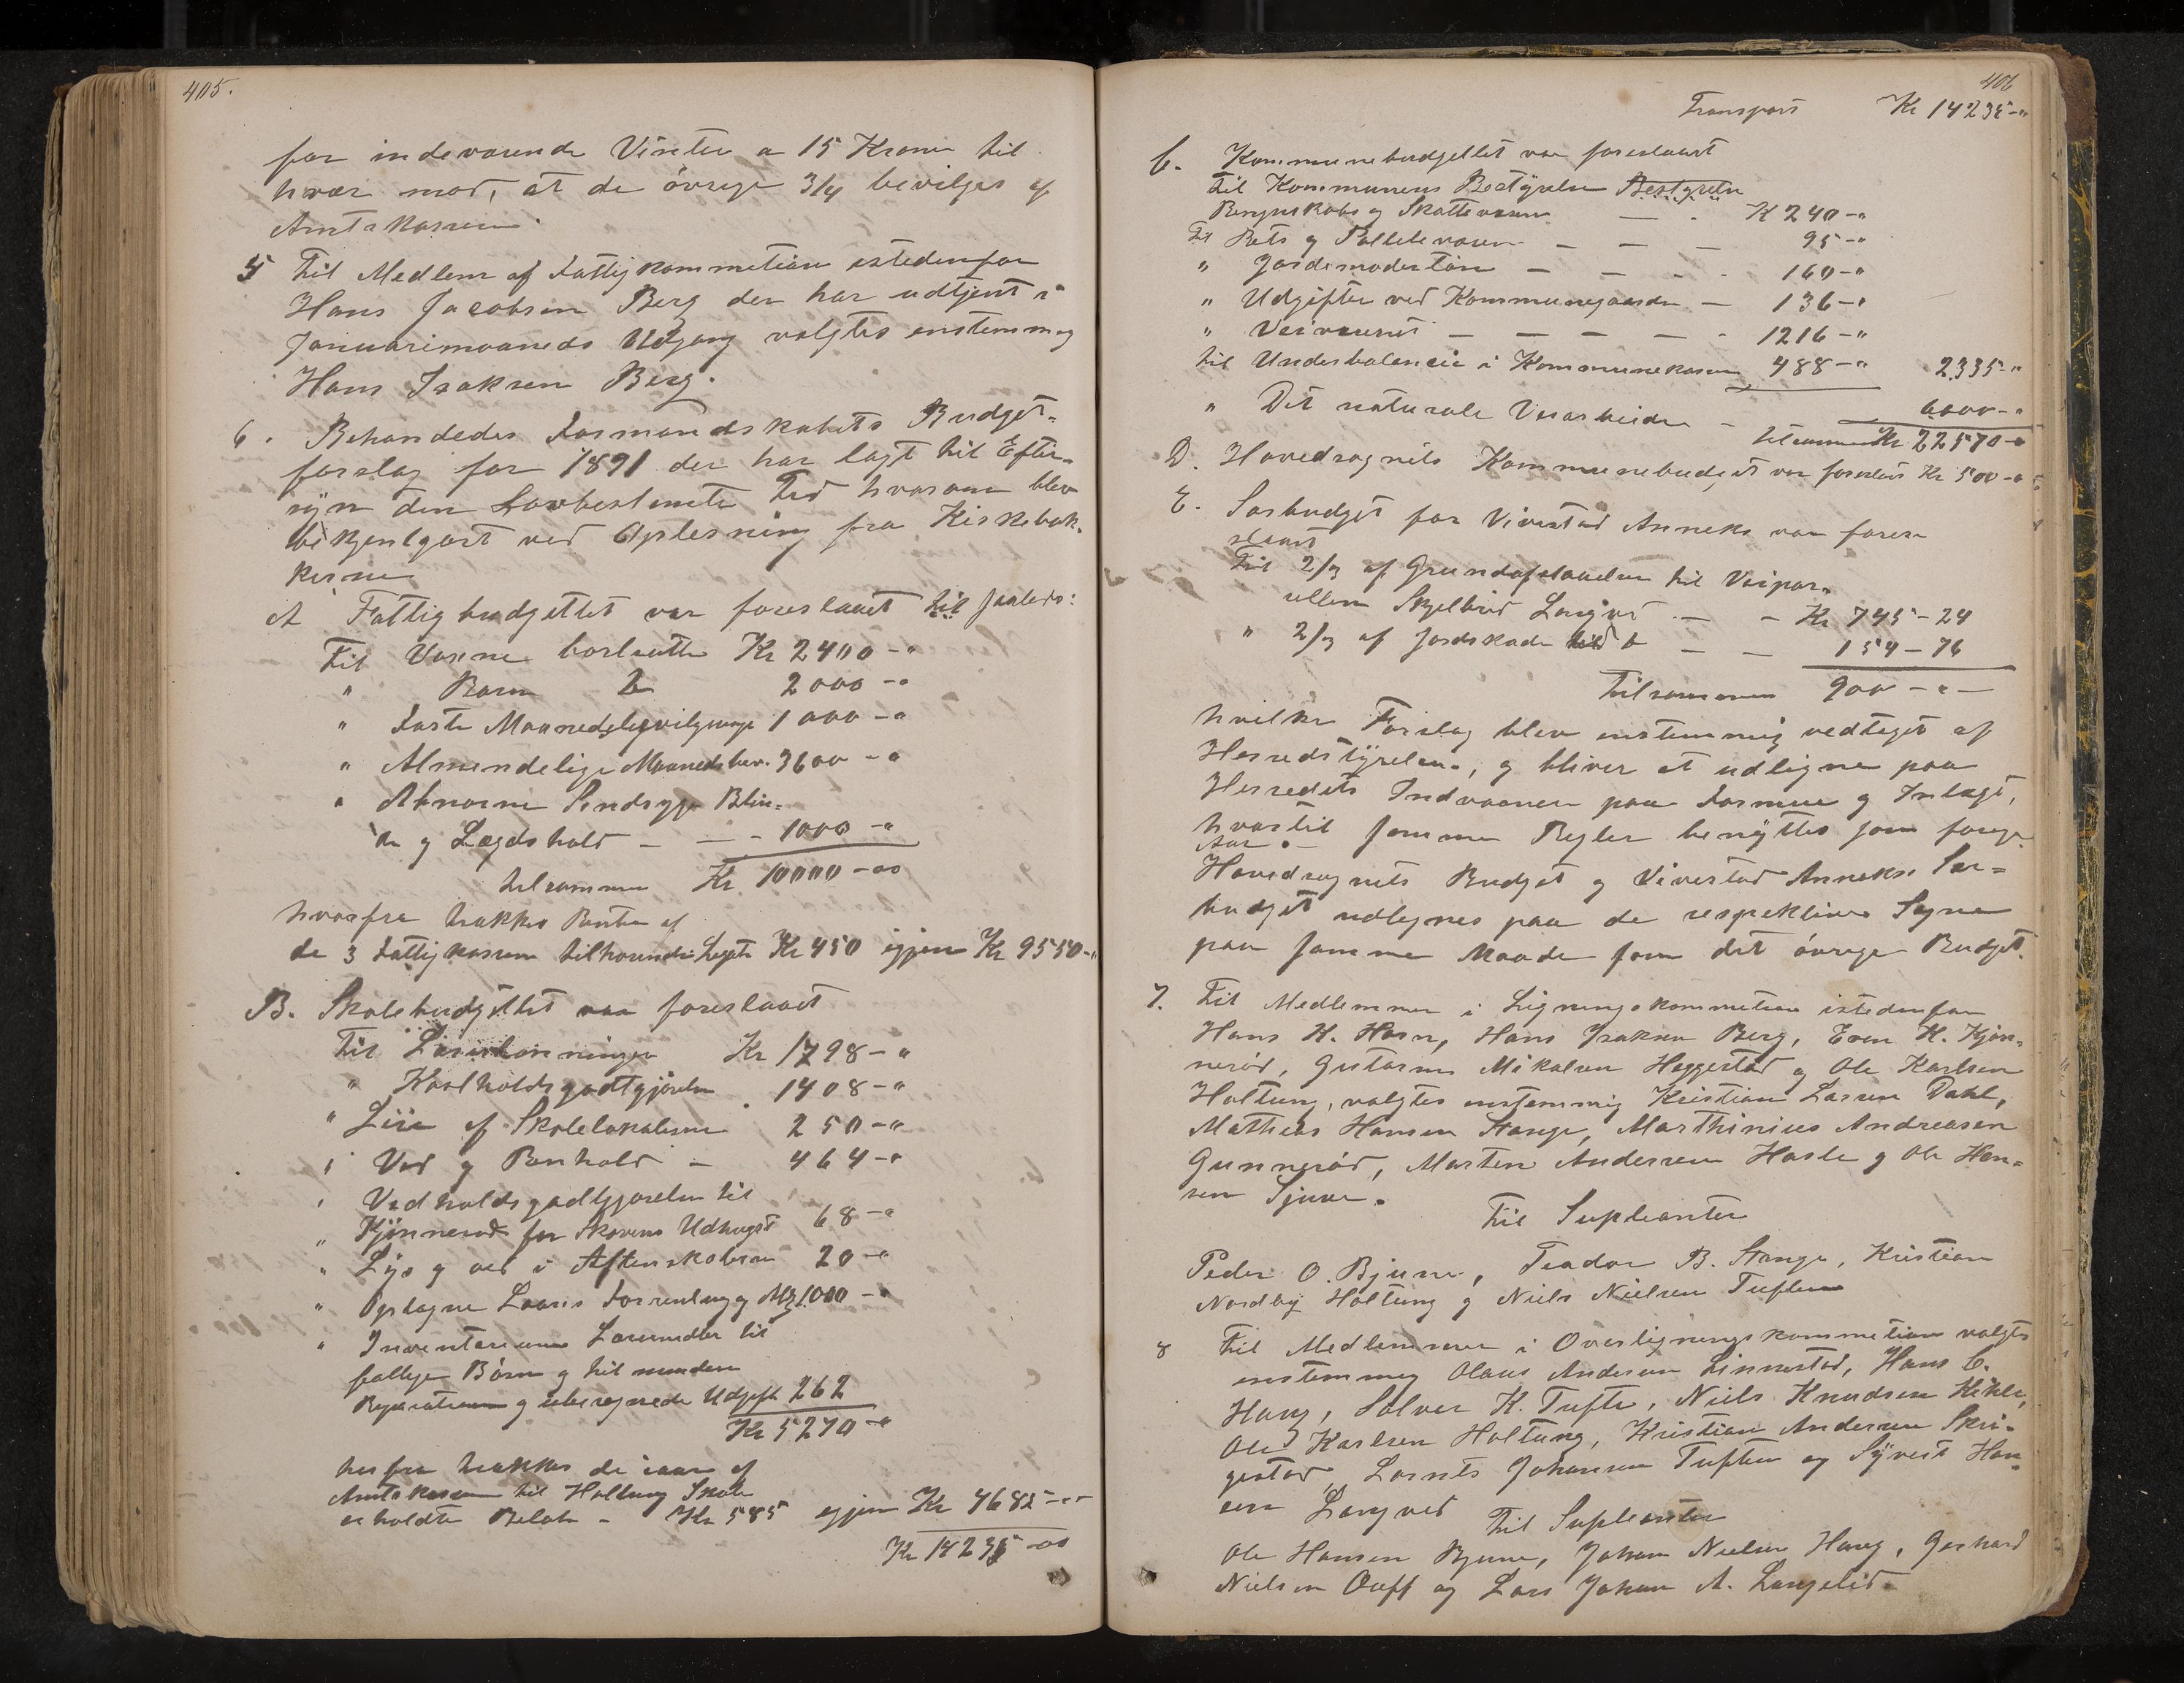 405.
for indeværende Vinter a 15 Kroner til
hver mod, at de övrige 3/4 bevilges af
Amtskassen.
5 Til Medlem af Fattigkommetion istedenfor
Hans Jacobsen Berg der har udtjent i
Januarimaaneds Udgang valgtes enstemmig
Hans Isaksen Berg.
6. Behandledes Formandskabets Budget-
forslag for 1891 der har lagt til Efter-
syn den Lovbestemte Tid hvorom blev
bekjentgjort ved Oplesning fra Kirkebak-
kerne
A Fattigbudgettet var foreslaaet til saaleds:
Til Voxne bortsatte Kr 2400-"
" Børn D 2000-"
" Faste Maanedsbevilgninge 1000-"
" Almindelige Maanedsbev. 3600-"
" Abnorme Sindsyge Blin-
de og Lægdshold - - - 1000-"
tilsammen Kr 10000-00
hvorfra trækkes Renter af
de 3 Fattigkassen tilhørende Legater Kr 450 igjen Kr 9550-"
B. Skolebudgettet var foreslaaet
Til Lærerlønninger Kr 1798-"
" Kostholdsgodtgjørelse 1408-"
" Leie af Skolelokalerne 250-"
" Ved og Renhold - 464-"
" Vedholdsgodtgjørelse til
" Kjønnerød for Skovens Udhugst 68-"
" Lys og ved i Aftenskolerne 20-"
" Optagne Laans Forrentning og Afdg 1000-"
" Inventarium Læremidler til
fattige Børn og til mindre
Reparationer og uberegnede Udgifter 262
Kr 5270-"
herfra trækkes de iaar af
Amtskassen til Holtung Skole
erholdte Beløb - Kr 585 igjen Kr 4685-"
Kr 14235-00
406
Transport Kr 14235-"
C. Kommunebudgettet var foreslaaet
til Kommunens Bestyrelse Bestyrelse
Regnskabs og Skattevæsen - - K 240-"
Til Rets og Politivæsen - - - 95-"
" Jordemoderløn - - - - 160-"
" Udgifter ved Kommunegaarden - 136-"
" Veivæsenet - - - - - 1216-"
til Underbalance i Kommunekassen 488-" 2335-"
" Det naturale Veiarbeide - 6000-"
tilsammen Kr 22570-"
D. Hovedsognets Kommunebudget var foreslaaet Kr 500-"
E. Særbudget for Vivestad Anneks var fores-
slaaet
Til 2/3 af Grundafstaaelse til Veipar-
sellen Skjelbred Langved - - Kr 745-24
" 2/3 af Jordskade D - - 154-76
Tilsammen 900-"-
hvilke Forslag blev enstemmig vedtaget af
Herredstyrelsen, og bliver at udligne paa
Herredets Indvaanere paa Formue og Indtægt,
hvortil samme Regler benyttes som forige
Aar.-
Hovedsognets Budget og Vivestad Anneks Sær-
budget udlignes paa de respektive Sogne
paa samme Maade som det övrige Budget.
7. Til Medlemmer i Ligningskommetion istedenfor
Hans H. Horn, Hans Isaksen Berg, Even H. Kjøn-
nerød, Gustorm Mikalsen Heggestad og Ole Karlsen
Holtung, valgtes enstemmig Kristian Larsen Dahl,
Mathias Hansen Stange, Marthinius Andreasen
Gunnerød, Morten Andersen Hasle og Ole Han-
sen Gjuve.
Til Suplianter
Peder O. Bjune, Teodor B. Stange, Kristian
Nordby Holtung og Niels Nielsen Tufte
8 Til Medlemmer i Overligningskommetion valgtes
enstemmig Olaus Andersen Linnestad, Hans C.
Haug, Sølver K. Tufte, Niels Knudsen Hikle,
Ole Karlsen Holtung, Kristian Andersen Skri-
gestad, Lornts Johansen Tufte og Syvert Han-
sen Langved
Til Suplianter
Ole Hansen Bjune, Johan Nielsen Haug, Gerhard
Nielsen Ouff og Lars Johan A. Langelid